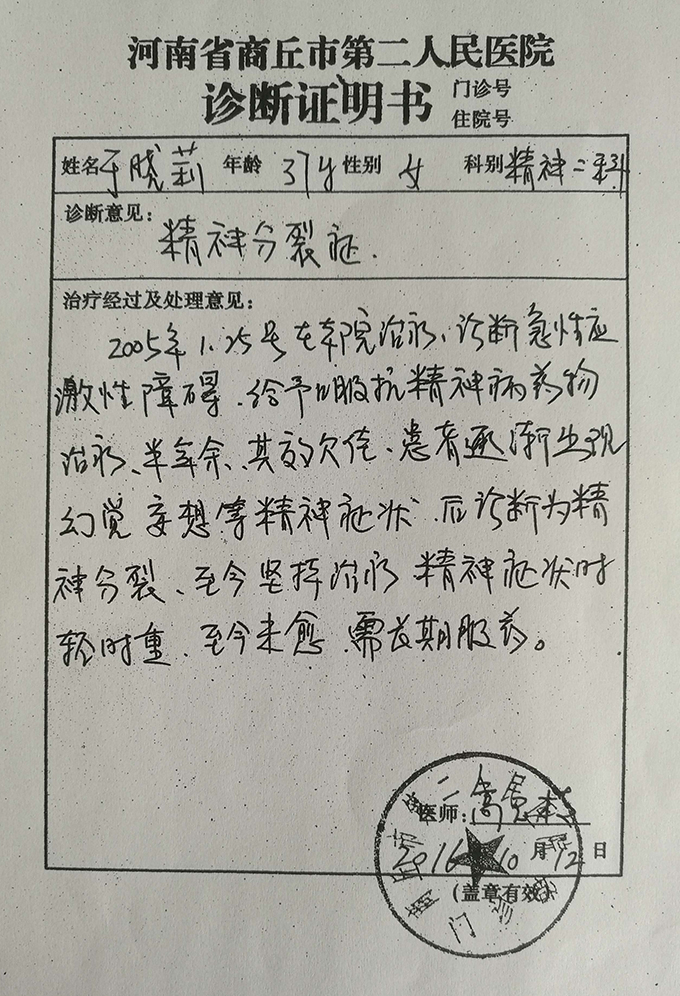 河南省商丘市第二人民医院
诊断证明书 门诊号
住院号
姓名 于晓莉 年龄 37岁 性别 女 科别 精神二科
诊断意见：
精神分裂症.
治疗经过及处理意见：
2005年1.25号在本院治疗、诊断急性应
激性障碍、给予口服抗精神病药物
治疗、半年余、其效欠佳、患者逐渐出现
幻觉妄想等精神症状、后诊断为精
神分裂、至今坚持治疗 精神症状时
轻时重、至今未愈 需长期服药。
医师：
2016 10月12日
(盖章有效)